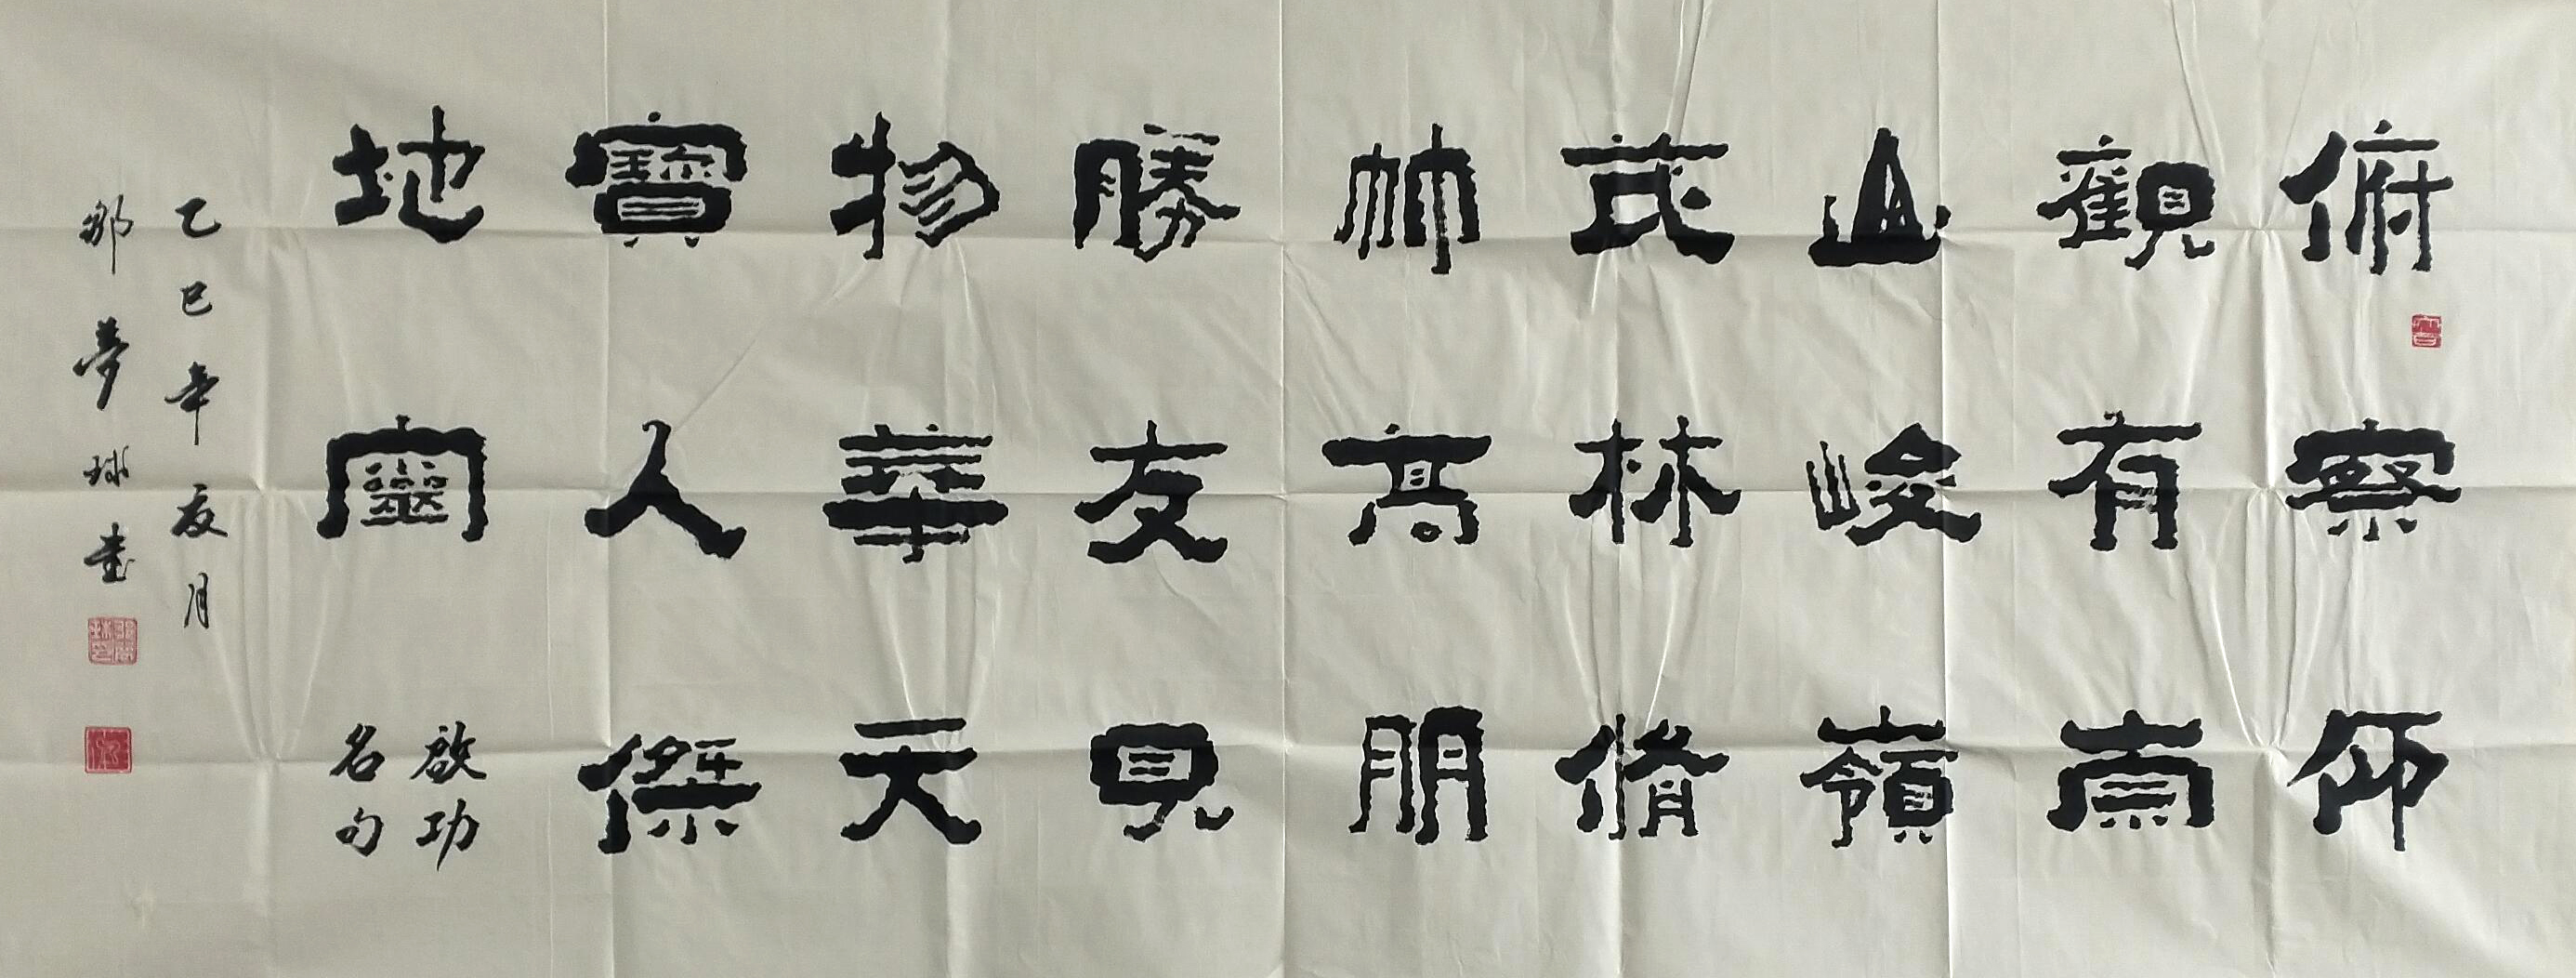 俯察仰
觀有崇
山峻嶺
茂林脩
竹高朋
勝友見
物華天
寶人傑
地靈
啟功
名句
乙巳年夏月
邹夢球書